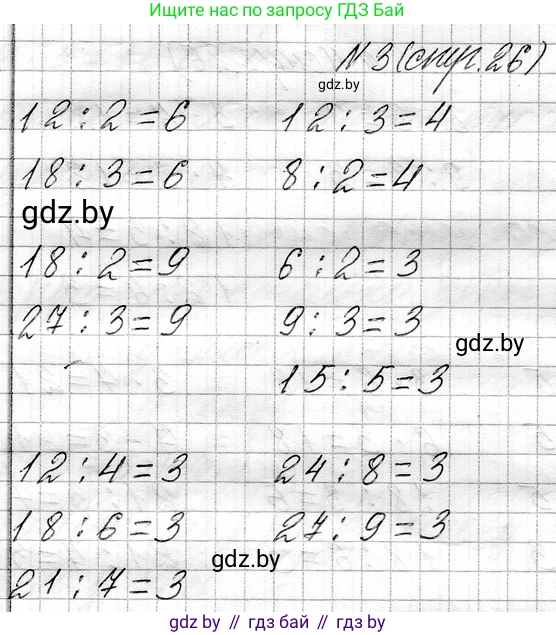 Ищите нас по запросу ГДЗ Бай
N 3 (стр. 26)
gdz.by
12 : 2 = 6 12 : 3 = 4
18 : 3 = 6 8 : 2 = 4
gdz.by
18 : 2 = 9 6 : 2 = 3
27 : 3 = 9 9 : 3 = 3
gdz.by
15 : 5 = 3
12 : 4 = 3 24 : 8 = 3
18 : 6 = 3 27 : 9 = 3
gdz.by
21 : 7 = 3
gdz.by // гдз бай // gdz by